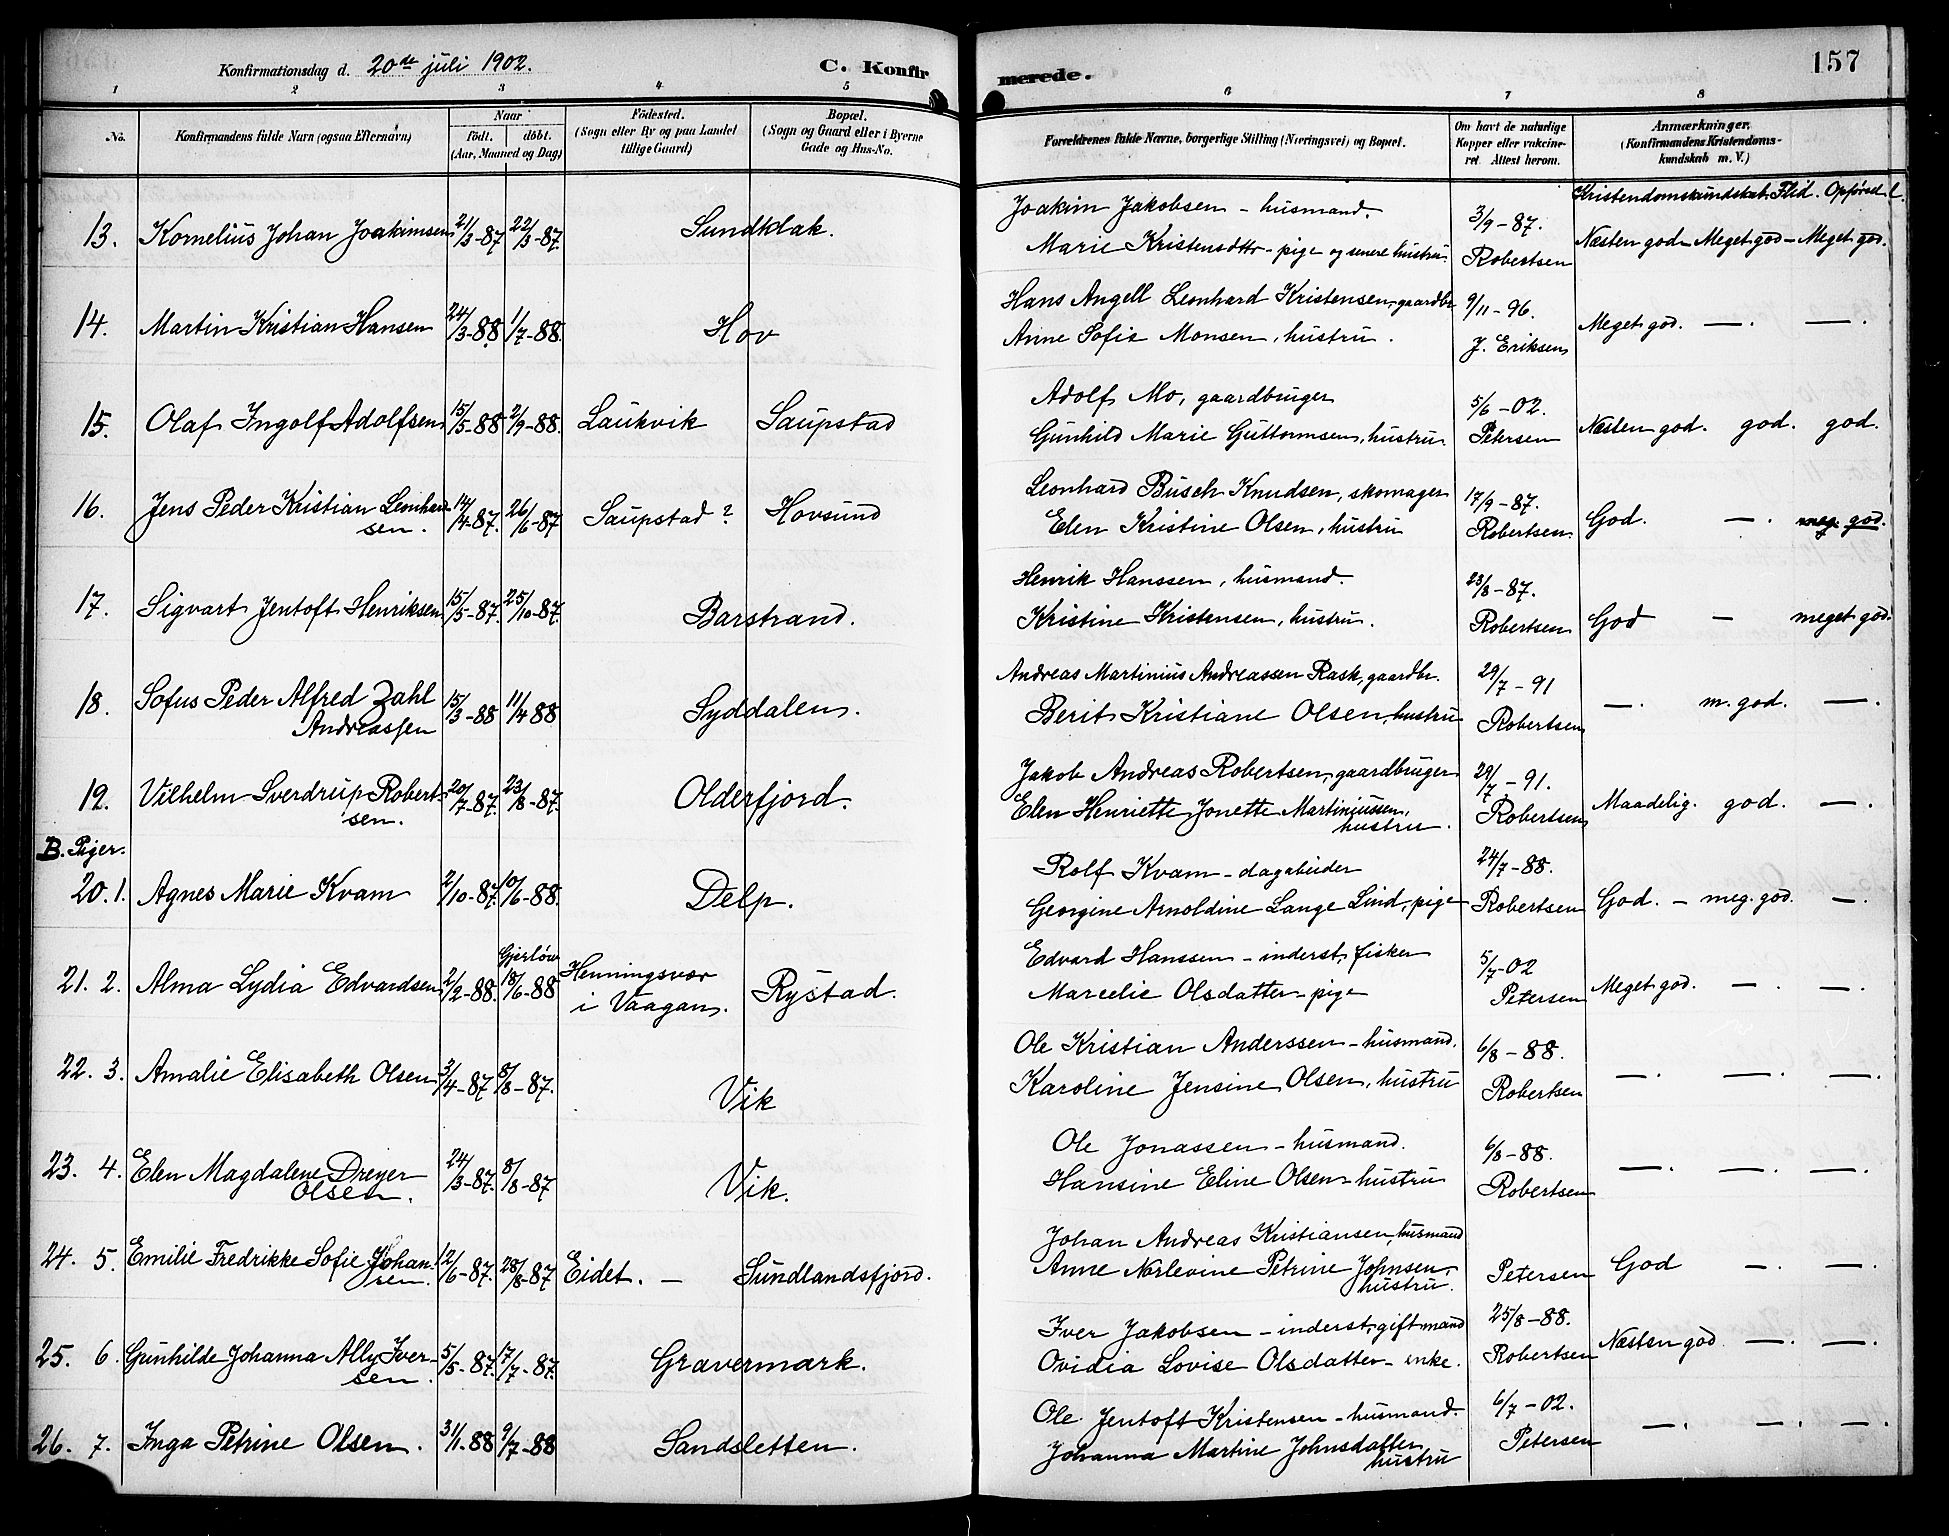 Konfirmationsdag d. 20de juli 1902.
C. Konfirmerede.
157
1 2 3 4 5 6 7 8
No.
Konfirmandens fulde Navn (ogsaa Efternavn)
Naar
födt. döbt.
(Aar, Maaned og Dag)
Födested.
(Sogn eller By og paa Landet
tillige Gaard)
Bopæl.
(Sogn og Gaard eller i Byerne
Gade og Hus-No.
Forældrenes fulde Navne, borgerlige Stilling (Næringsvei) og Bopæl.
Om havt de naturlige
Kopper eller vakcine-
ret. Attest herom.
Anmærkninger.
(Konfirmandens Kristendoms-
kundskab m. V.)
Kristendomskundskab. Flid. Opførsel.
13. Kornelius Johan Joakimsen 21/3-87 22/3-87. Sundklak.
Joakim Jakobsen - husmand.
Marie Kristensdttr - pige og senere hustru.
3/9-87.
Robertsen
Næsten god - Meget god - Meget god.
14. Martin Kristian Hansen 24/3-88 1/7-88. Hov
Hans Angell Leonhard Kristensen, gaardbr
Anne Sofie Monsen, hustru.
9/11-96.
J. Eriksen
Meget god. —. —.
15. Olaf Ingolf Adolfsen 15/5-88 2/9-88. Laukvik Saupstad
Adolf Mo, gaardbruger
Gunhild Marie Guttormsen, hustru.
5/6-02.
Petersen
Næsten god. god. god.
16. Jens Peder Kristian Leonhard
sen. 14/4-87. 26/6-87 Saupstad? Hovsund
Leonhard Busch Knudsen, skomager
Elen Kristine Olsen, hustru
17/9-87.
Robertsen.
God. —. meg. god.
17. Sigvart Jentoft Henriksen 15/5-87. 25/10-87. Barstrand.
Henrik Hanssen, husmand.
Kristine Kristensen, hustru.
23/8-87.
Robertsen
God — meget god.
18. Sofus Peder Alfred Zahl
Andreassen 15/3-88 11/4 88 Syddalen.
Andreas Martinius Andreassen Rask, gaardbr.
Berit Kristiane Olsen, hustru
29/7-91
Robertsen
—. m. god. —.
19. Vilhelm Sverdrup Robert-
sen. 20/7-87. 23/8-87. Olderfjord.
Jakob Andreas Robertsen, gaardbruger
Elen Henriette Jonette Martiniussen,
hustru.
29/7-91.
Robertsen
Maadelig. god. —.
B. Piger.
20. 1. Agnes Marie Kvam 2/10-87. 10/6-88. Delp.
Rolf Kvam - dagarbeider
Georgine Arnoldine Lange Lind, pige
24/7-88.
Robertsen
God. - meg. god. —.
21. 2. Alma Lydia Edvardsen 2/2-88. Gjerløw 18/6-88 Henningsvær
i Vaagan. Rystad.
Edvard Hanssen - inderst, fisker
Marcelie Olsdatter - pige
5/7-02
Petersen
Meget god. —. —.
22. 3. Amalie Elisabeth Olsen 3/4-87 8/8-87. Vik
Ole Kristian Anderssen - husmand.
Karoline Jensine Olsen, hustru
6/8-88.
Robertsen
—. —. —.
23. 4. Elen Magdalene Dreyer
Olsen. 24/3-87. 8/8-87 Vik.
Ole Jonassen - husmand.
Hansine Eline Olsen - hustru
6/8-88.
Robertsen
—. —. —.
24. 5. Emilie Fredrikke Sofie Johan-
sen. 12/6-87. 28/8-87 Eidet. — Sundlandsfjord.
Johan Andreas Kristiansen, husmand
Anne Petrine Johnsen,
hustru.
Petersen
God —. —.
25. 6. Gunhilde Johanna Ally Iver-
sen. 5/5-87. 17/7-87. Gravermark.
Iver Jakobsen - inderst, gift mand
Ovidia Lovise Olsdatter - enke.
25/8-88.
Robertsen
Næsten god. —. —.
26. 7. Inga Petrine Olsen. 31/1-88 9/7-88 Sandsletten.
Ole Jentoft Kristensen - husmand.
Johanna Martine Johnsdatter
hustru
6/7-02.
Petersen
—. —. —.